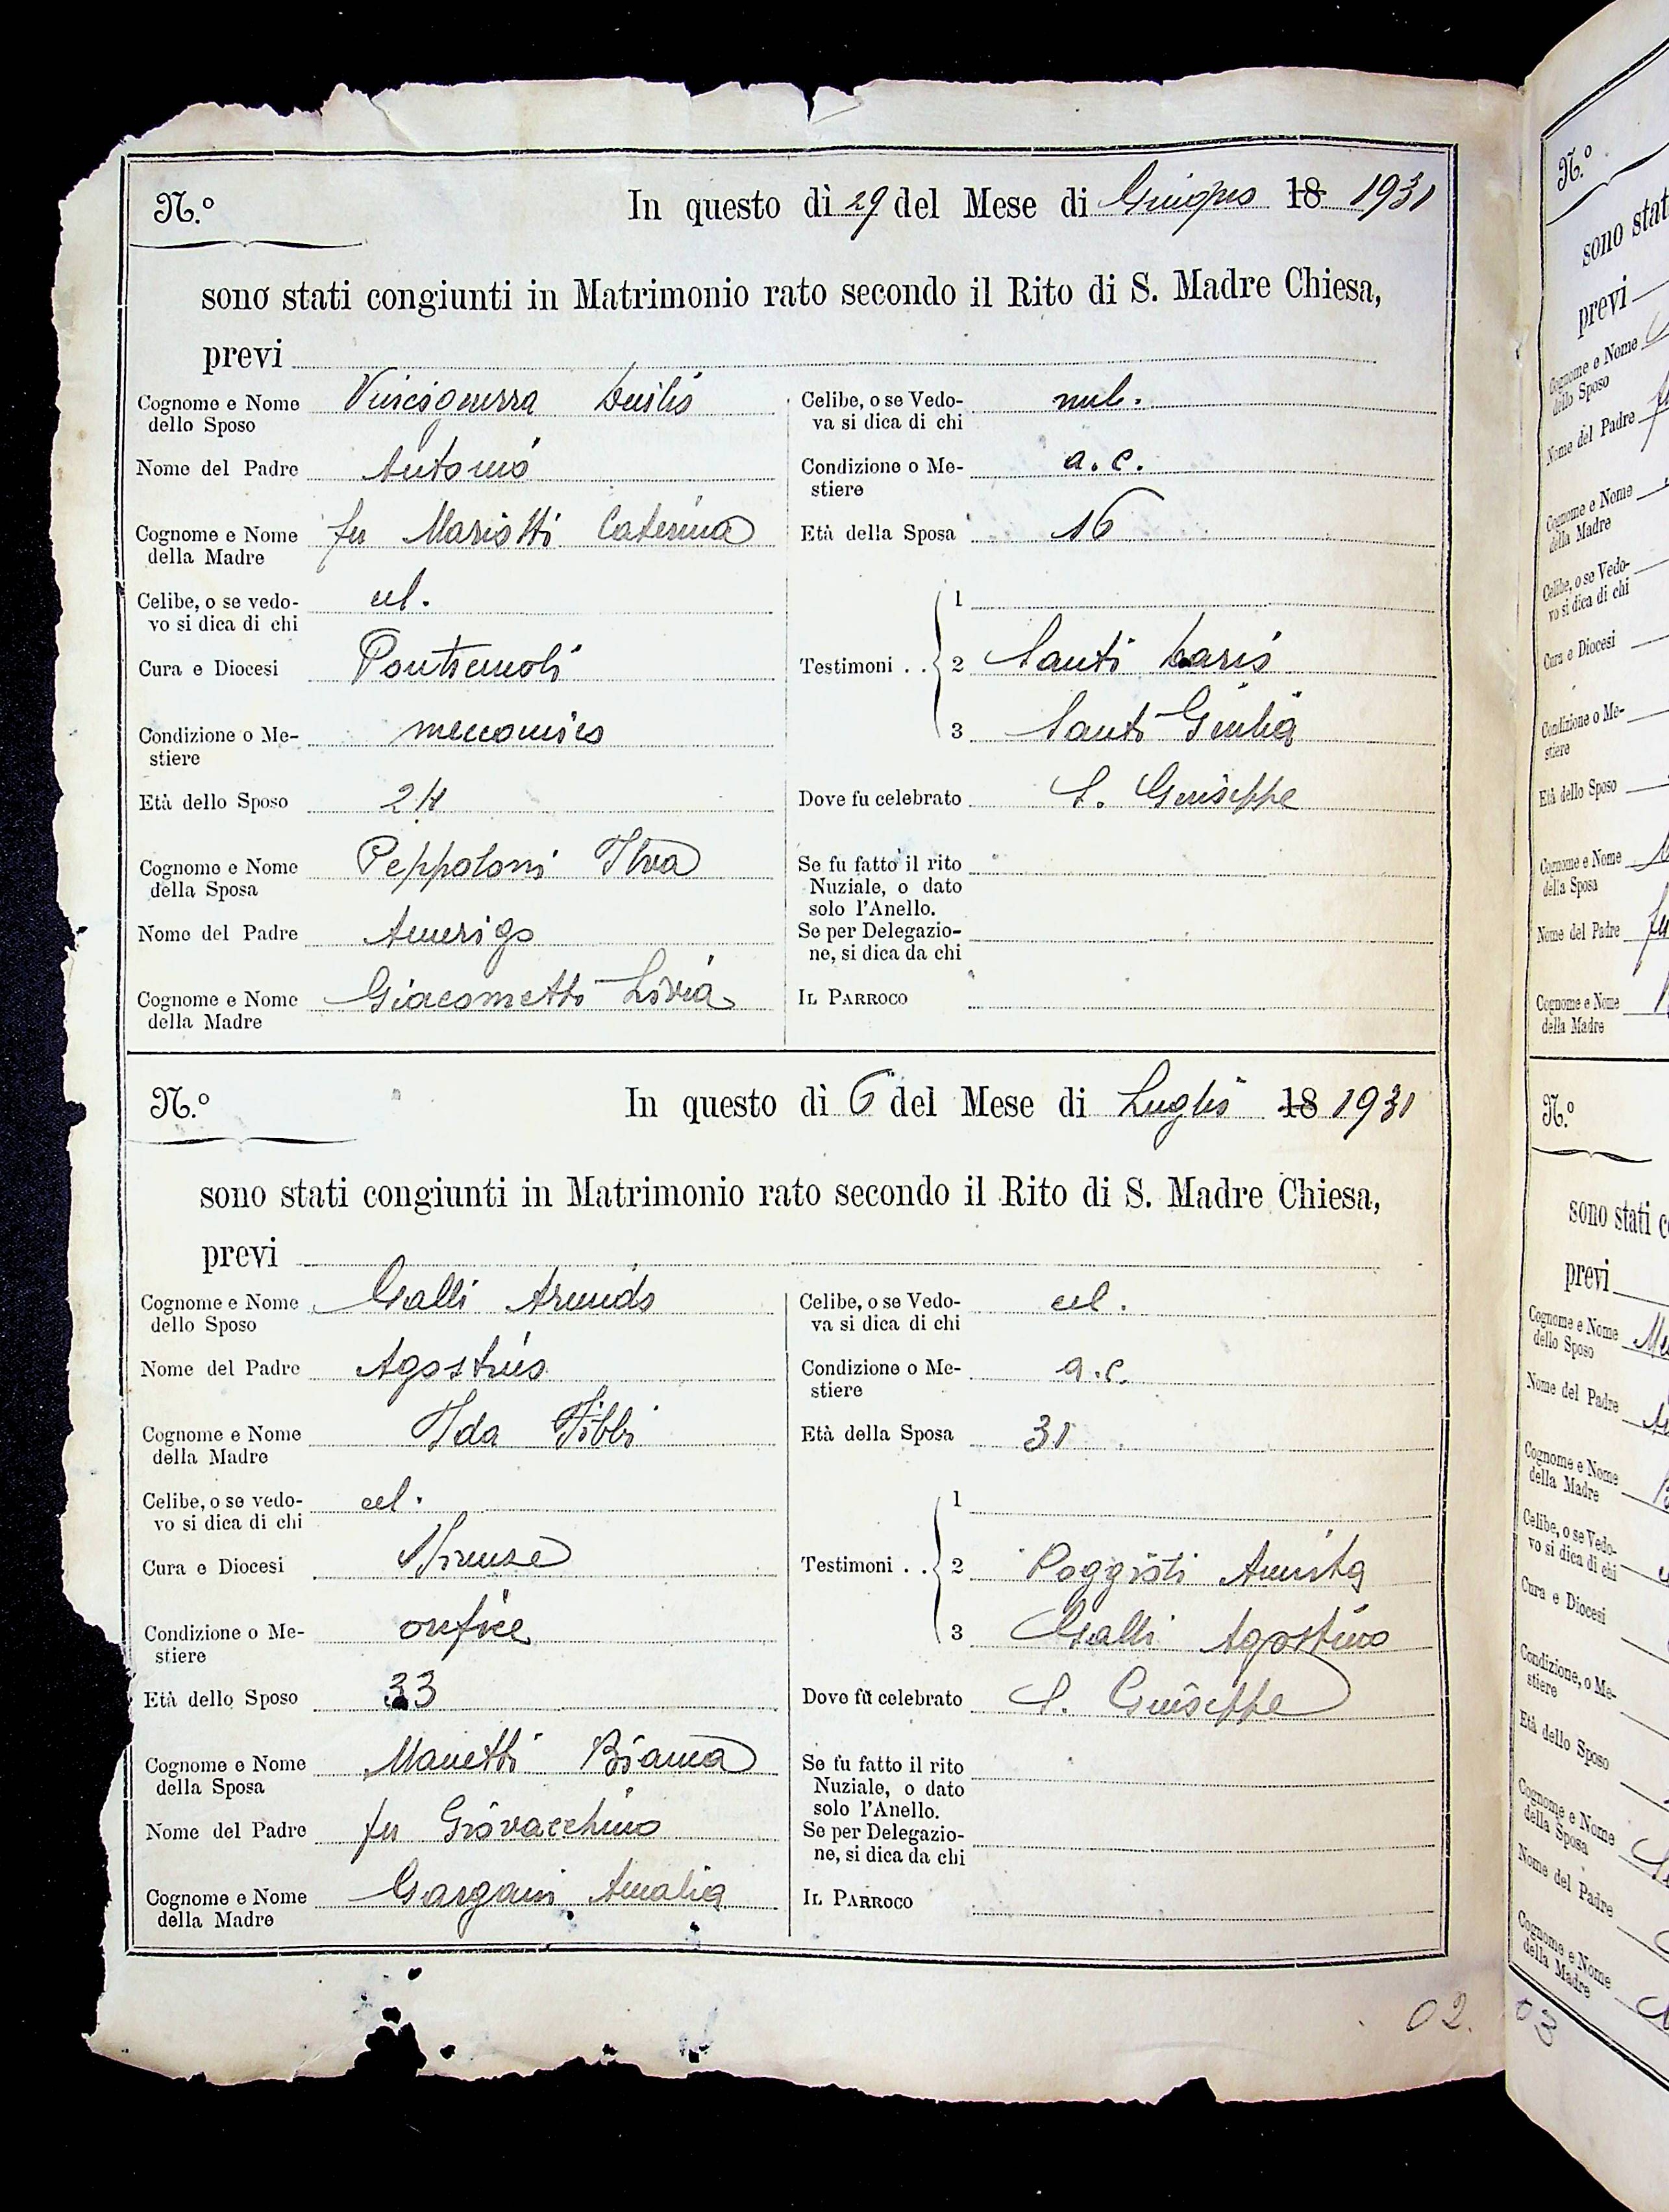 N.º In questo dì 29 del Mese di Giugno 18 1931
sono stati congiunti in Matrimonio rato secondo il Rito di S. Madre Chiesa,
previ
Cognome e Nome dello Sposo Vinciguerra Duilio
Nome del Padre Antonio
Cognome e Nome della Madre fu Mariotti Caterina
Celibe, o se vedovo si dica di chi cel.
Cura e Diocesi Pontremoli
Condizione o Mestiere meccanico
Età dello Sposo 24
Cognome e Nome della Sposa Peppoloni Ilva
Nome del Padre Amerigo
Cognome e Nome della Madre Giacometti Livia
Celibe, o se Vedova si dica di chi nub.
Condizione o Mestiere a. c.
Età della Sposa 16
Testimoni . . 1
2 Santi
3 Santi Giulia
Dove fu celebrato S. Giuseppe
Se fu fatto il rito Nuziale, o dato solo l'Anello.
Se per Delegazione, si dica da chi
Il Parroco
N.º In questo dì 6 del Mese di Luglio 18 1931
sono stati congiunti in Matrimonio rato secondo il Rito di S. Madre Chiesa,
previ
Cognome e Nome dello Sposo Galli Armido
Nome del Padre Agostino
Cognome e Nome della Madre Ida Fibbi
Celibe, o se vedovo si dica di chi cel.
Cura e Diocesi Firenze
Condizione o Mestiere orefice
Età dello Sposo 33
Cognome e Nome della Sposa Manetti Bianca
Nome del Padre fu Giovacchino
Cognome e Nome della Madre Gargani Amalia
Celibe, o se Vedova si dica di chi cel.
Condizione o Mestiere a. c.
Età della Sposa 31
Testimoni . . 1
2 Poggioli
3 Galli Agostino
Dove fu celebrato S. Giuseppe
Se fu fatto il rito Nuziale, o dato solo l'Anello.
Se per Delegazione, si dica da chi
Il Parroco
02.
N.º
sono stat
previ
Cognome e Nome dello Sposo
Nome del Padre
Cognome e Nome della Madre
Celibe, o se Vedovo si dica di chi
Cura e Diocesi
Condizione o Mestiere
Età dello Sposo
Cognome e Nome della Sposa
Nome del Padre fu
Cognome e Nome della Madre
N.º
sono stati c
previ
Cognome e Nome dello Sposo
Nome del Padre
Cognome e Nome della Madre
Celibe, o se Vedovo si dica di chi
Cura e Diocesi
Condizione, o Mestiere
Età dello Sposo
Cognome e Nome della Sposa
Nome del Padre
Cognome e Nome della Madre
03